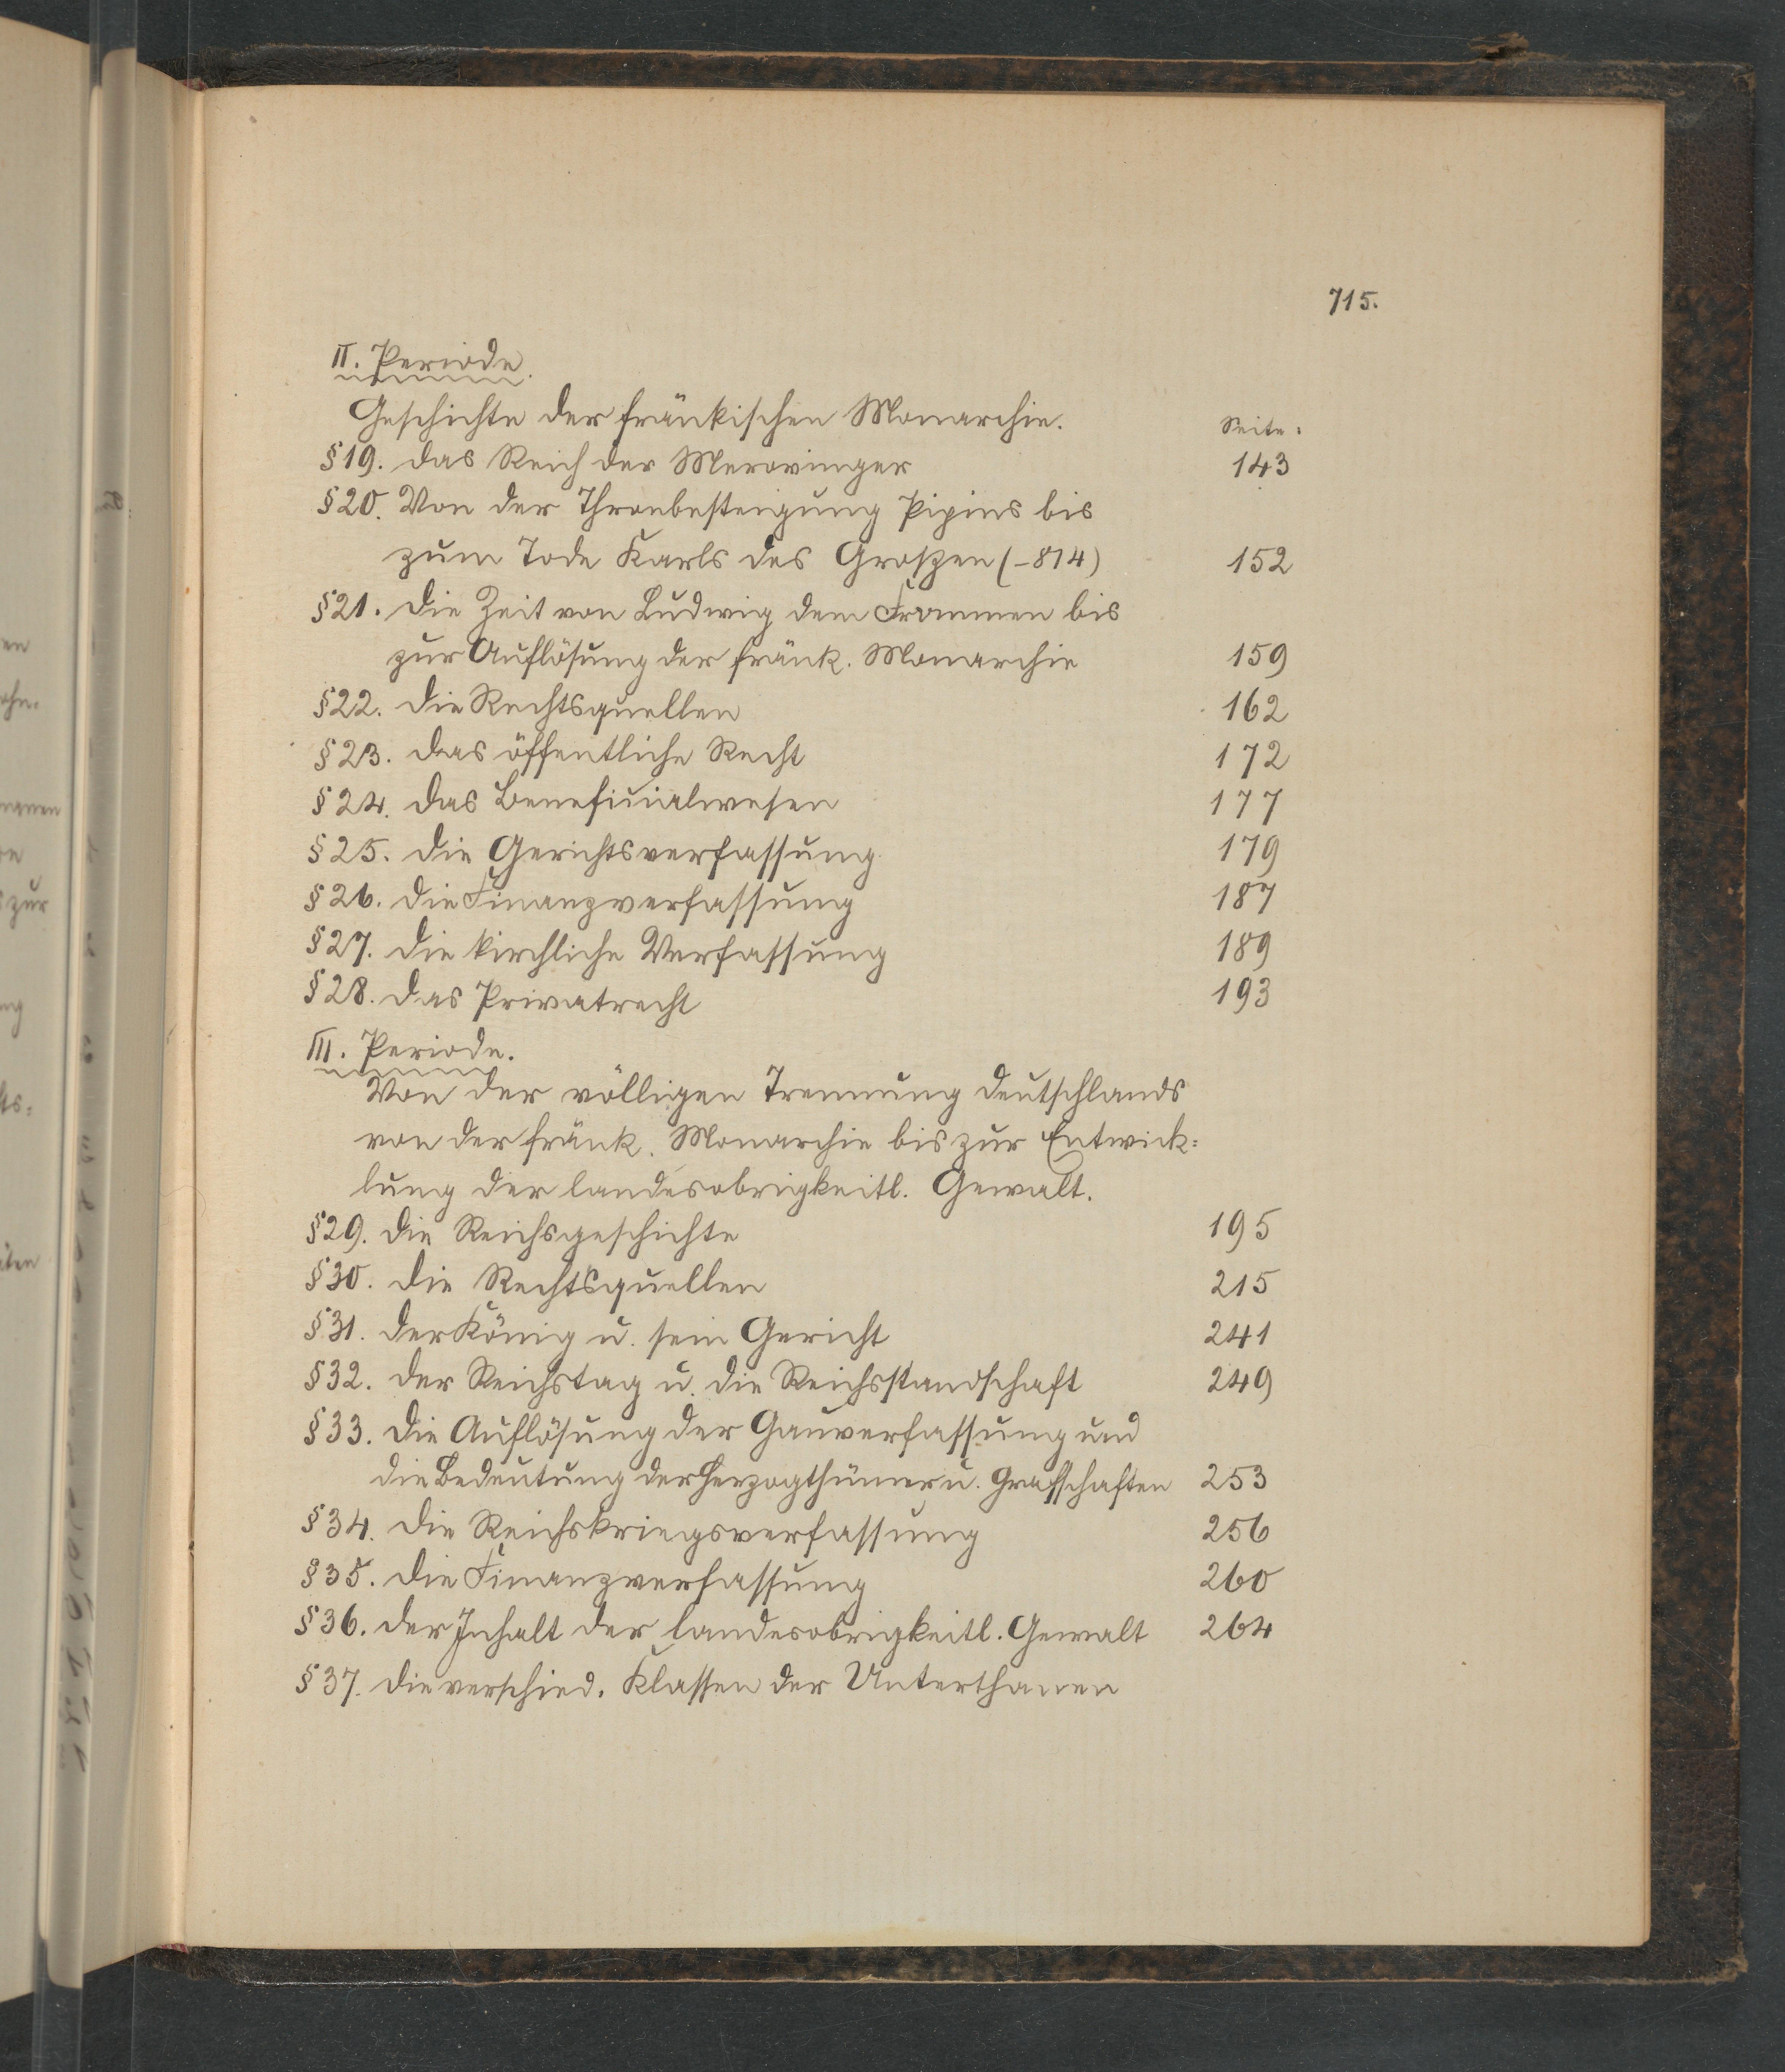 715.
II. Periode.
Geschichte der fränkischen Monarchie. Seite.
§19. das Reich der Merovinger 143
§20. Von der Thronbesteigung Pipins bis
zum Tode Karls des Großen (-814) 152
§21. die Zeit von Ludwig dem Frommen bis
zur Auflösung der fränk. Monarchie 159
§22. die Rechtsquellen 162
§23. das öffentliche Recht 172
§24. das Beneficialwesen 177
§25. die Gerichtsverfassung 179
§26. die Finanzverfassung 187
§27. die kirchliche Verfassung 189
§28. das Privatrecht 193
III. Periode.
Von der völligen Trennung Deutschlands
von der fränk. Monarchie bis zur Entwick=
lung der landesobrigkeitl. Gewalt.
§29. die Reichsgeschichte 195
§30. die Rechtsquellen 215
§31. der König u. sein Gericht 241
§32. der Reichstag u. die Reichsstandschaft 249
§33. die Auflösung der Gauverfassung und
die Bedeutung der Herzogthümer u. Grafschaften 253
§34. die Reichskriegsverfassung 256
§35. die Finanzverfassung 260
§36. der Inhalt der landesobrigkeitl. Gewalt 264
§37. die verschied. Klassen der Unterthanen